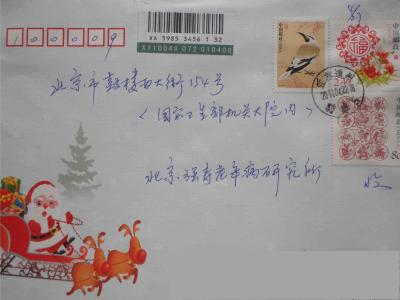 100009
XA 3985 3456 1 32
XY10048 072 010400
北京市鼓楼西大街154号
(国家卫生部机关大院内)
北京强寿老年病研究所
收
中国邮政